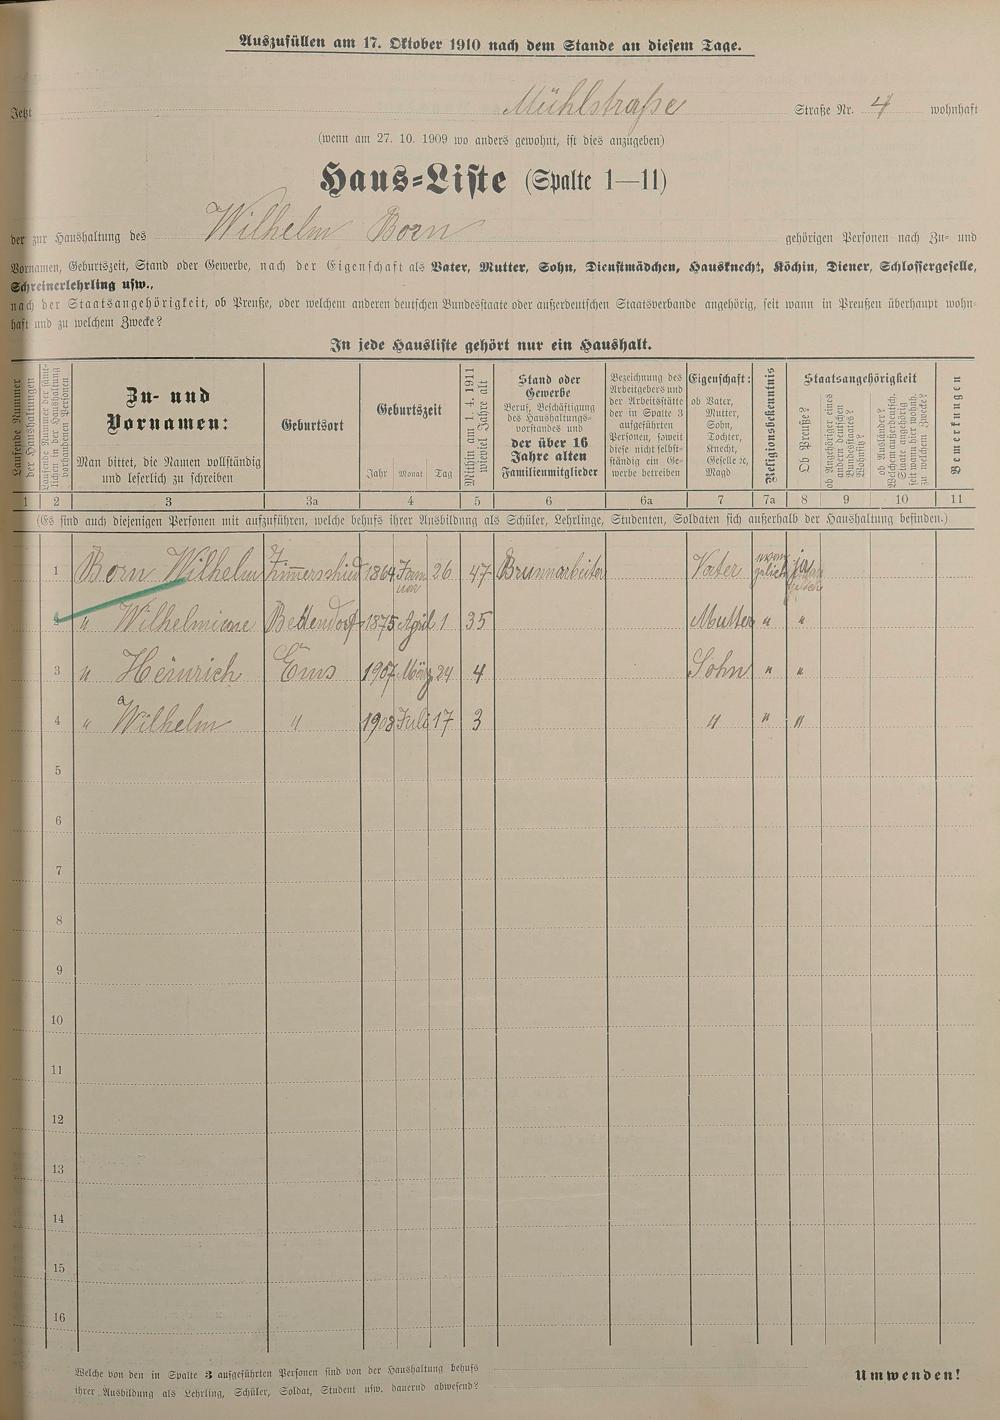 Auszufüllen am 17. Oktober 1910 nach dem Stande an diesem Tage.
Jetzt Mühlstraße Straße Nr. 4 wohnhaft
(wenn am 27. 10. 1909 wo anders gewohnt, ist dies anzugeben)
Haus-Liste (Spalte 1—11)
der zur Haushaltung des Wilhelm Born gehörigen Personen nach Zu- und
Vornamen, Geburtszeit, Stand oder Gewerbe, nach der Eigenschaft als Vater, Mutter, Sohn, Dienstmädchen, Hausknecht, Köchin, Diener, Schlossergeselle,
Schreinerlehrling usw.,
nach der Staatsangehörigkeit, ob Preuße, oder welchem anderen deutschen Bundesstaate oder außerdeutschen Staatsverbande angehörig, seit wann in Preußen überhaupt wohn-
haft und zu welchem Zwecke?
In jede Hausliste gehört nur ein Haushalt.
Laufende Nummer
der Haushaltungen
Laufende Nummer der sämt-
lichen in der Haushaltung
vorhandenen Personen
Zu- und
Vornamen:
Man bittet, die Namen vollständig
und leserlich zu schreiben
Geburtsort
Geburtszeit
Jahr Monat Tag
Mithin am 1. 4. 1911
wieviel Jahre alt
Stand oder
Gewerbe
Beruf, Beschäftigung
des Haushaltungs-
vorstandes und
der über 16
Jahre alten
Familienmitglieder
Bezeichnung des
Arbeitgebers und
der Arbeitsstätte
der in Spalte 3
aufgeführten
Personen, soweit
diese nicht selbst-
ständig ein Ge-
werbe betreiben
Eigenschaft:
ob Vater,
Mutter,
Sohn,
Tochter,
Knecht,
Geselle ꝛc,
Magd
Religionsbekenntnis
Staatsangehörigkeit
Ob Preuße?
ob Angehöriger eines
andern deutschen
Bundesstaates?
Wohnsitz?
ob Ausländer?
Welchem außerdeutsch.
Staate angehörig
seit wann hier wohnh.
zu welchem Zwecke?
Bemerkungen
1 2 3 3a 4 5 6 6a 7 7a 8 9 10 11
(Es sind auch diejenigen Personen mit aufzuführen, welche behufs ihrer Ausbildung als Schüler, Lehrlinge, Studenten, Soldaten sich außerhalb der Haushaltung befinden.)
1 Born Wilhelm Zimmerschied 1864 Januar 26 47 Brunnarbeiter Vater ja
2 " Wilhelmine Bettendorf 1875 April 1 35 Mutter " "
3 " Heinrich Ems 1907 März 24 4 Sohn " "
4 " Wilhelm " 1908 Juli 17 3 " " "
5
6
7
8
9
10
11
12
13
14
15
16
Welche von den in Spalte 3 aufgeführten Personen sind von der Haushaltung behufs
ihrer Ausbildung als Lehrling, Schüler, Soldat, Student usw. dauernd abwesend?
Umwenden!